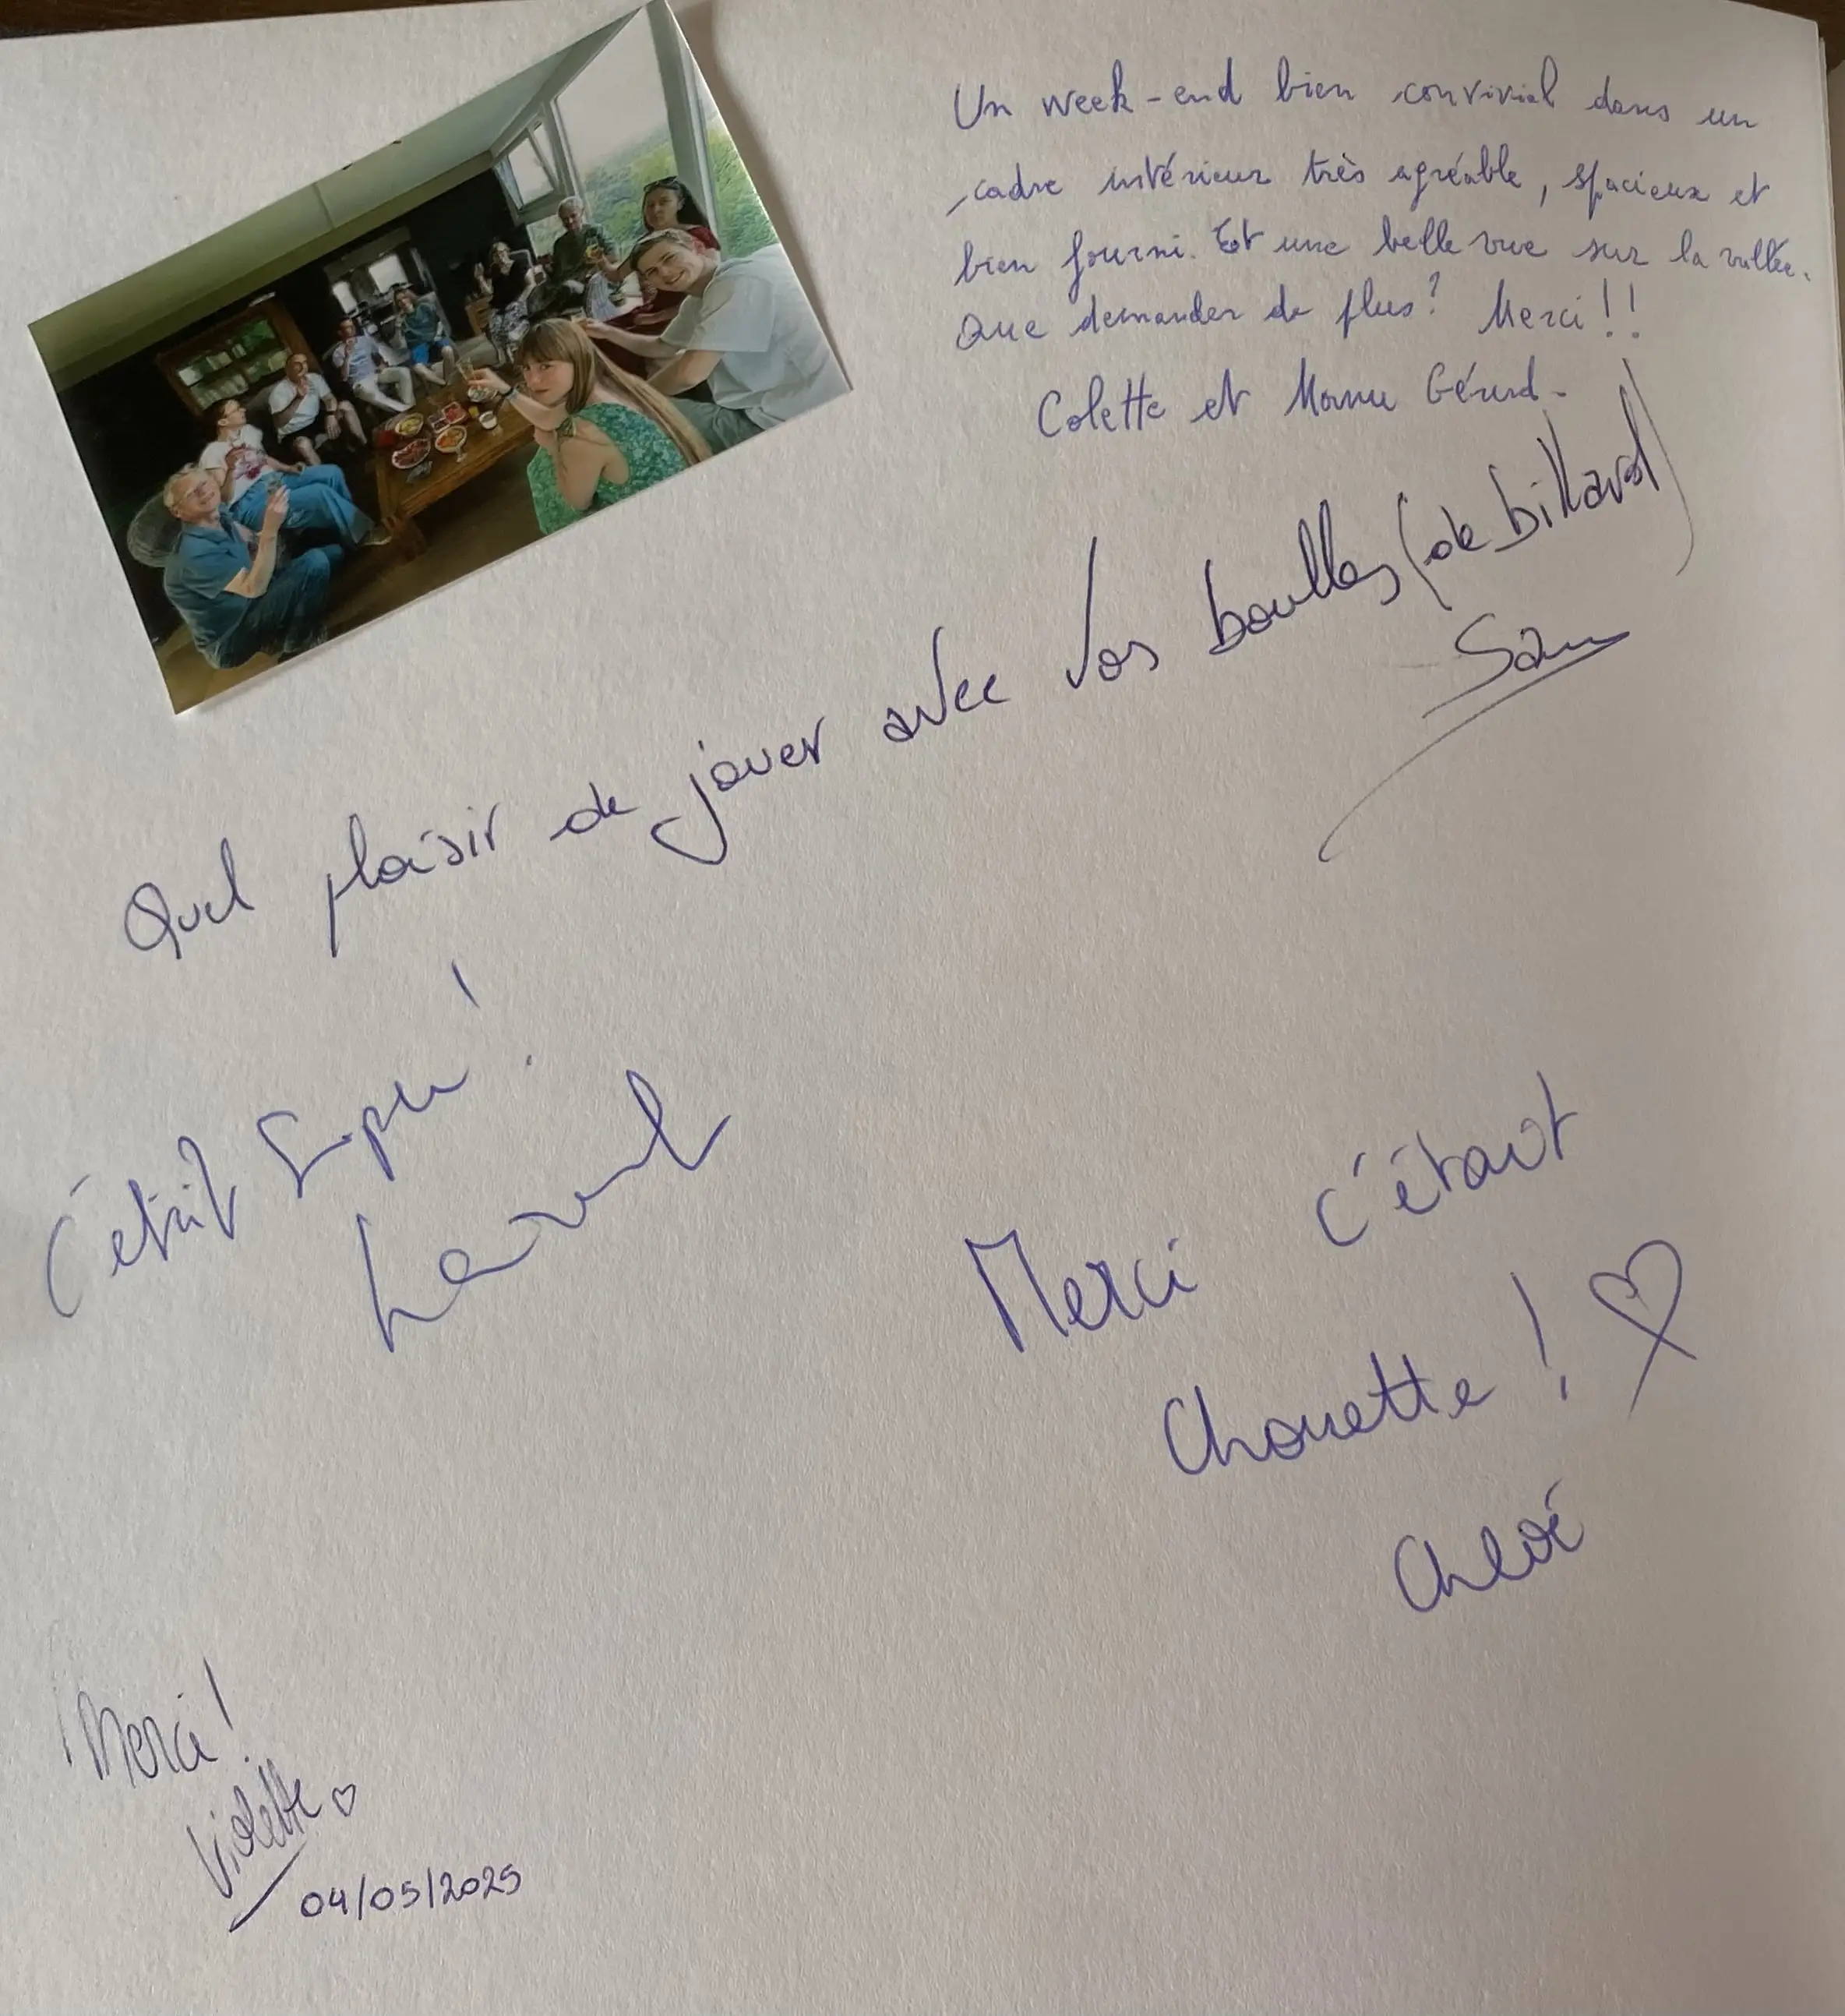 Un week-end bien convivial dans un
cadre intérieur très agréable, spacieux et
bien fourni. Et une belle vue sur la vallée.
Que demander de plus? Merci!!
Colette et Manu Gérard.
Quel plaisir de jouer avec vos boulles (de billard)
Sam
C'était Super!
Merci c'était
Chouette! ♡
Chloé
Merci!
Violette ♡
04/05/2025